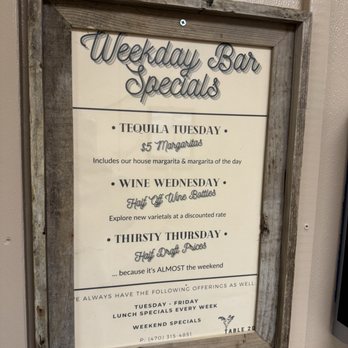 Weekday Bar
Specials
• TEQUILA TUESDAY •
$5 Margaritas
Includes our house margarita & margarita of the day
• WINE WEDNESDAY •
Half Off Wine Bottles
Explore new varietals at a discounted rate
• THIRSTY THURSDAY •
Half Draft Prices
... because it's ALMOST the weekend
E ALWAYS HAVE THE FOLLOWING OFFERINGS AS WELL
TUESDAY - FRIDAY
LUNCH SPECIALS EVERY WEEK
WEEKEND SPECIALS
TABLE 20
P: (470) 315-4951